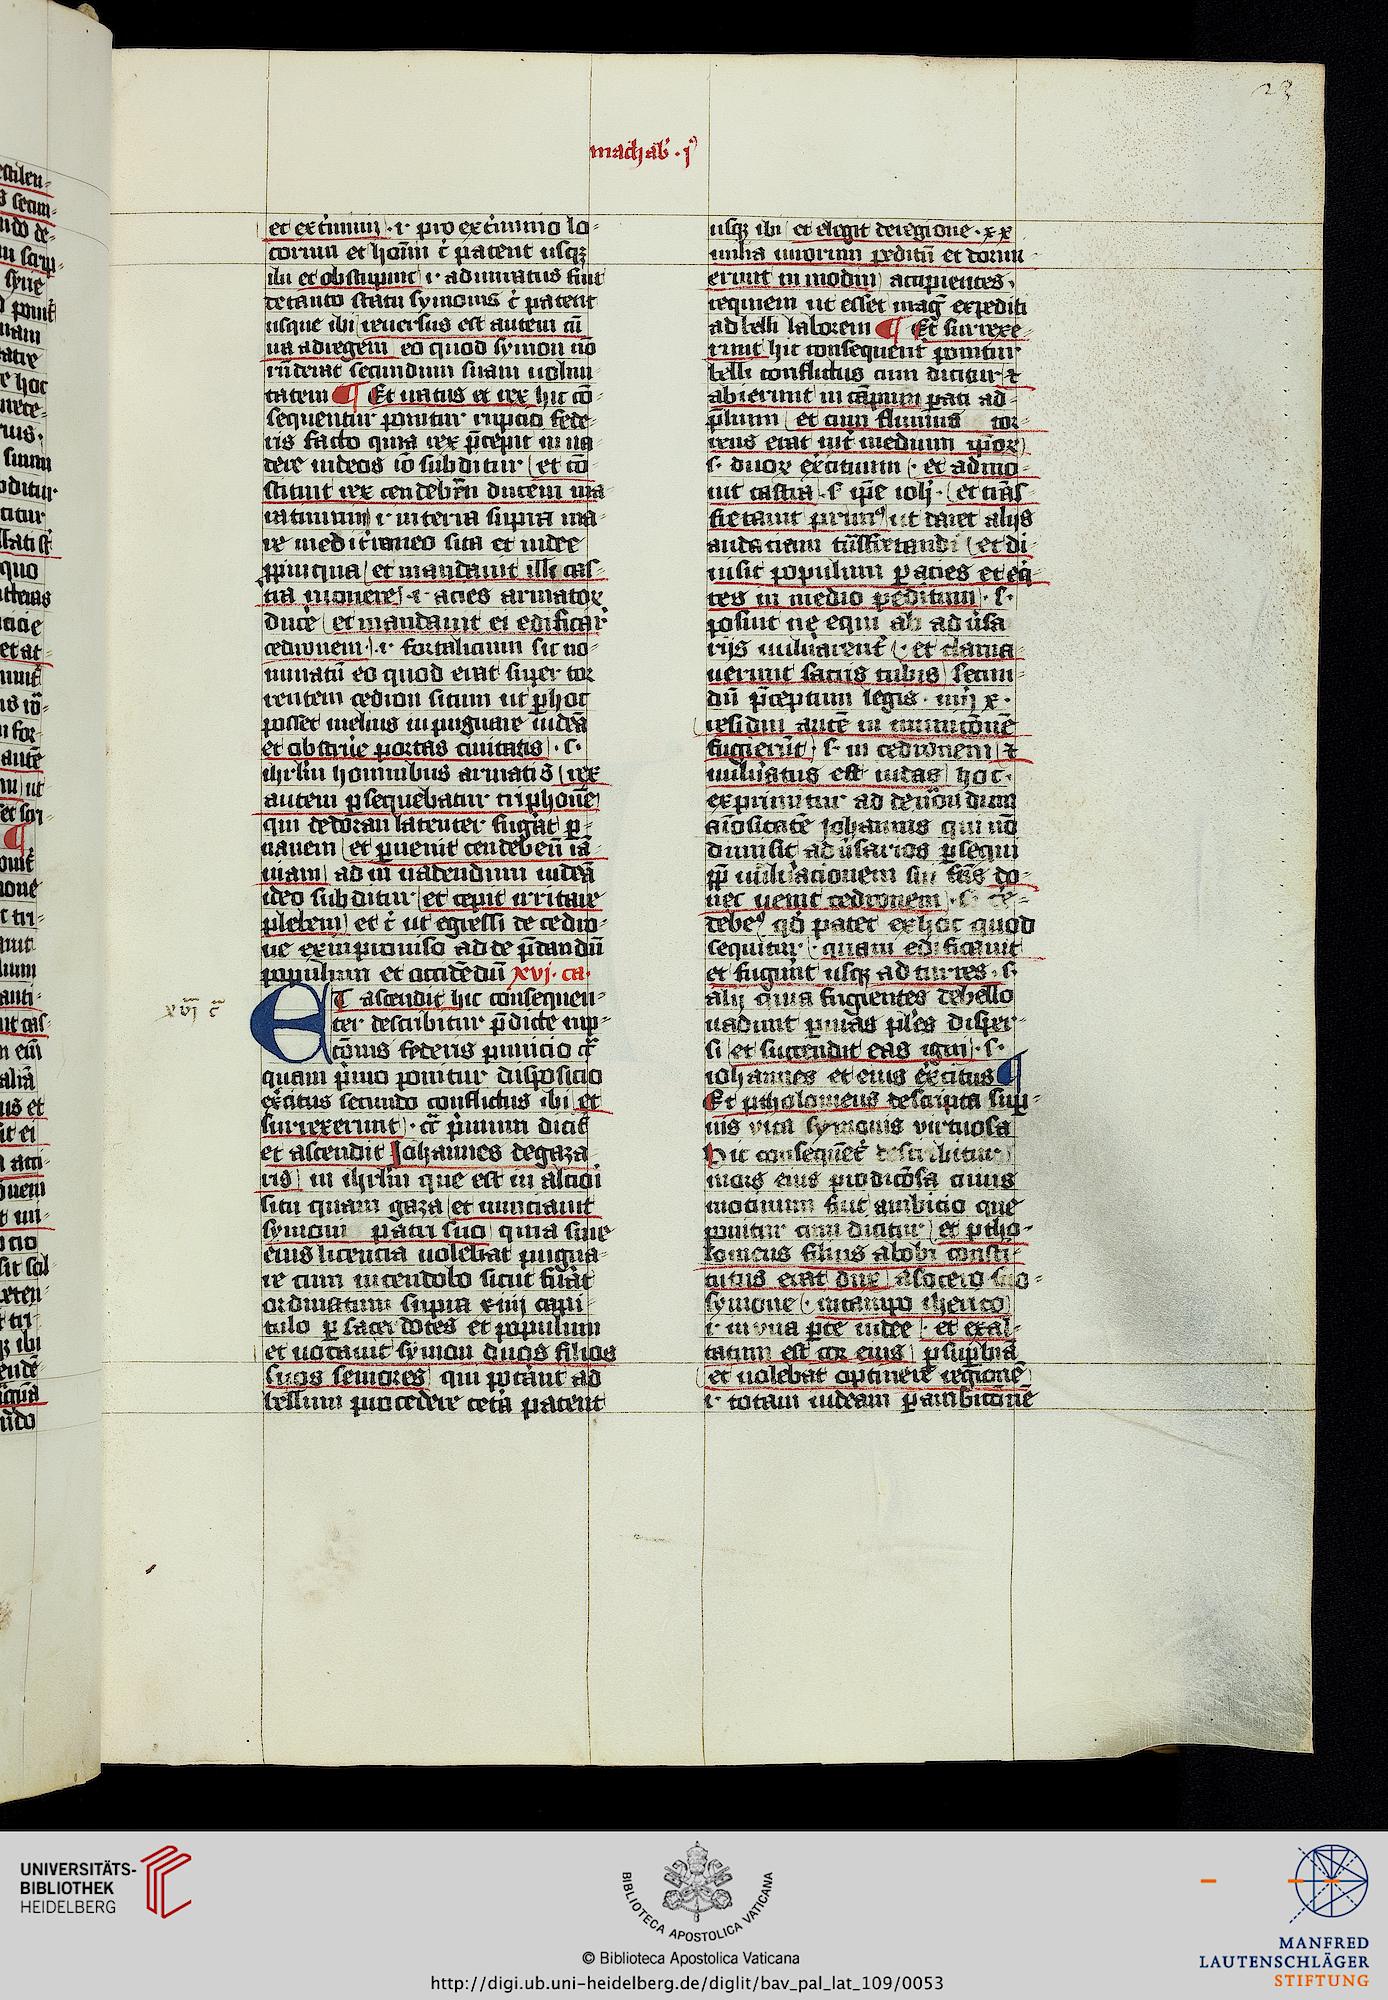 23
machab' · jꝰ
et extimuit · i· pro extimino lo-
corum et homīn ť patent usqꝫ
ibi et obstupuit i· admiratus fuit
de tanto statu symonis ť patent
usque ibi reuersus est autem cū
ira ad regem eo quod symon nō
rn̄derat secundum suam uolun
tatem ¶ Et iratus ꝫ rex hic cō-
sequentur ponitur rupcio fede-
ris facto quia rex p̄cepit in ua
dere iudeos iō subditur et cō-
stituit rex cendebēn ducem ma
ratimum i· in terra supra ma-
re med iťraneo sita et iudee
ꝓpinqua et mandauit illi cas-
tra mouere i· acies armatoꝝ
duce et mandauit ei edificar'
cedronem · i· fortalicium sic no-
minatū eo quod erat super tor
rentem cedron situm ut ꝑ hoc
posset melius inpugnare iudeā
et obstrue' portas ciuitatis · s·
ihrlm hominibus armatis rex
autem ꝑsequebatur triphonē
qui de doran latenter fugat ꝑ
nauem et ꝑuenit cendebeū iā-
niam ad in uadendum iudeā
ideo subditur et cepit irritare
plebem et ť ut egressi de cedro-
ne ex inprouiso ad de p̄dandū
populum et occidēdū xvj· ca·
xvj ca
ET ascendit hic consequen-
ter describitur p̄dicte rup-
cōnis federis punicio cͣ
quam p̄mo ponitur disposicio
ex̄citus secundo conflictus ibi et
surrexerunt · cͣ p̄mum dicit
et ascendit Johannes de gaza-
ris in ihrlm que est in alciori
situ quam gaza et nunciauit
symoni patri suo quia sine
eius licencia nolebat pugna-
re cum incendolo sicut fuāt
ordinatum supra xiiij capi-
tulo ꝑ sacerdotes et populum
et uocauit symon duos filios
suos seniores qui poťant ad
bellum procedere ceťa patent
usqꝫ ibi et elegit de regione · xx
milia uirorum peditū et dormi-
erunt in modin accipientes ·
requiem ut essēt mag̉ expediti
ad belli laborem ¶ Et surrexe-
runt hic consequent̉ ponitur
belli conflictus cum dicitur ⁊
abierunt in cāpum ꝑati ad-
p̄lium et cum fluuius tor-
rens erat int̉ medium ip̄oꝝ
s· duoꝝ ex̄cituum · et admo-
uit castra · s· ip̄e ioh̄ · et tn̄s
fretauit primꝰ ut daret alijs
audaciam tn̄sfretandi et di-
uisit populum ꝑ acies et eq̄
tes in medio peditum · s·
posuit ne equi ab aduʼsa
rijs uulnʼarentʼ · et clama-
uerunt sacris tubis secun-
dū p̄ceptum legis · nūj x·
residui autē in municōnē
fugierūt · s· in cedronem ⁊
uulnʼatus est iudas hoc·
exprimitur ad denotandum
aīositatē Johannis qui nō
dimisit aduʼsarios ꝑsequi
ꝓpʼ uulnʼacionem sui frīs do-
nec uenit cedronem · s· cē-
debeꝰ qō patet ex hoc quod
sequitur · quam edificauit
et fugiūt usqꝫ ad turres · s·
alij quia fugientes de bello
uadunt ꝑ uias pl'es disper-
si et succendit eas igni · s·
iohannes et eius ex̄citus ¶
Et ptholomeus descripta supʼi-
us vita symonis virtuosa
Hic consequētʼ describitur
mors eius prodicōsa cuius
motiuum fuit ambicio que
ponitur cum dicitur et ptho-
lomeus filius abobi consti-
tutus erat dux a socero suo-
symone · in campo iherico
i· in vna ꝑte iudee · et exal-
tatum est cor eius ꝑ suꝑbiā
et uolebat optinere regionē
i· totam iudeam ꝑ ambicōnē
UNIVERSITÄTS-
BIBLIOTHEK
HEIDELBERG
BIBLIOTECA APOSTOLICA VATICANA
© Biblioteca Apostolica Vaticana
http://digi.ub.uni-heidelberg.de/diglit/bav_pal_lat_109/0053
MANFRED
LAUTENSCHLÄGER
STIFTUNG